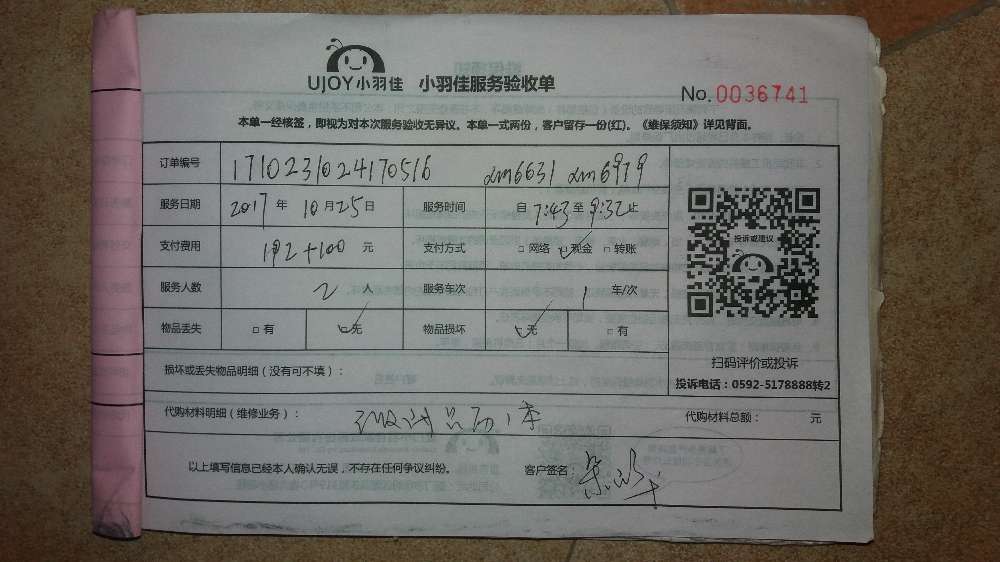 UJOY小羽佳 小羽佳服务验收单
No.0036741
本单一经核签，即视为对本次服务验收无异议。本单一式两份，客户留存一份(红)。《维保须知》详见背面。
订单编号 1710231024170516 dm6631 dm6979
服务日期 2017年10月25日 服务时间 自7:43至9:32止
支付费用 192+100元 支付方式 □网络 □现金 □转账
服务人数 2人 服务车次 1车/次
物品丢失 □有 □无 物品损坏 □无 □有
投诉或建议
扫码评价或投诉
投诉电话：0592-5178888转2
损坏或丢失物品明细（没有可不填）：
代购材料明细（维修业务）： 代购材料总额： 元
以上填写信息已经本人确认无误，不存在任何争议纠纷。 客户签名：